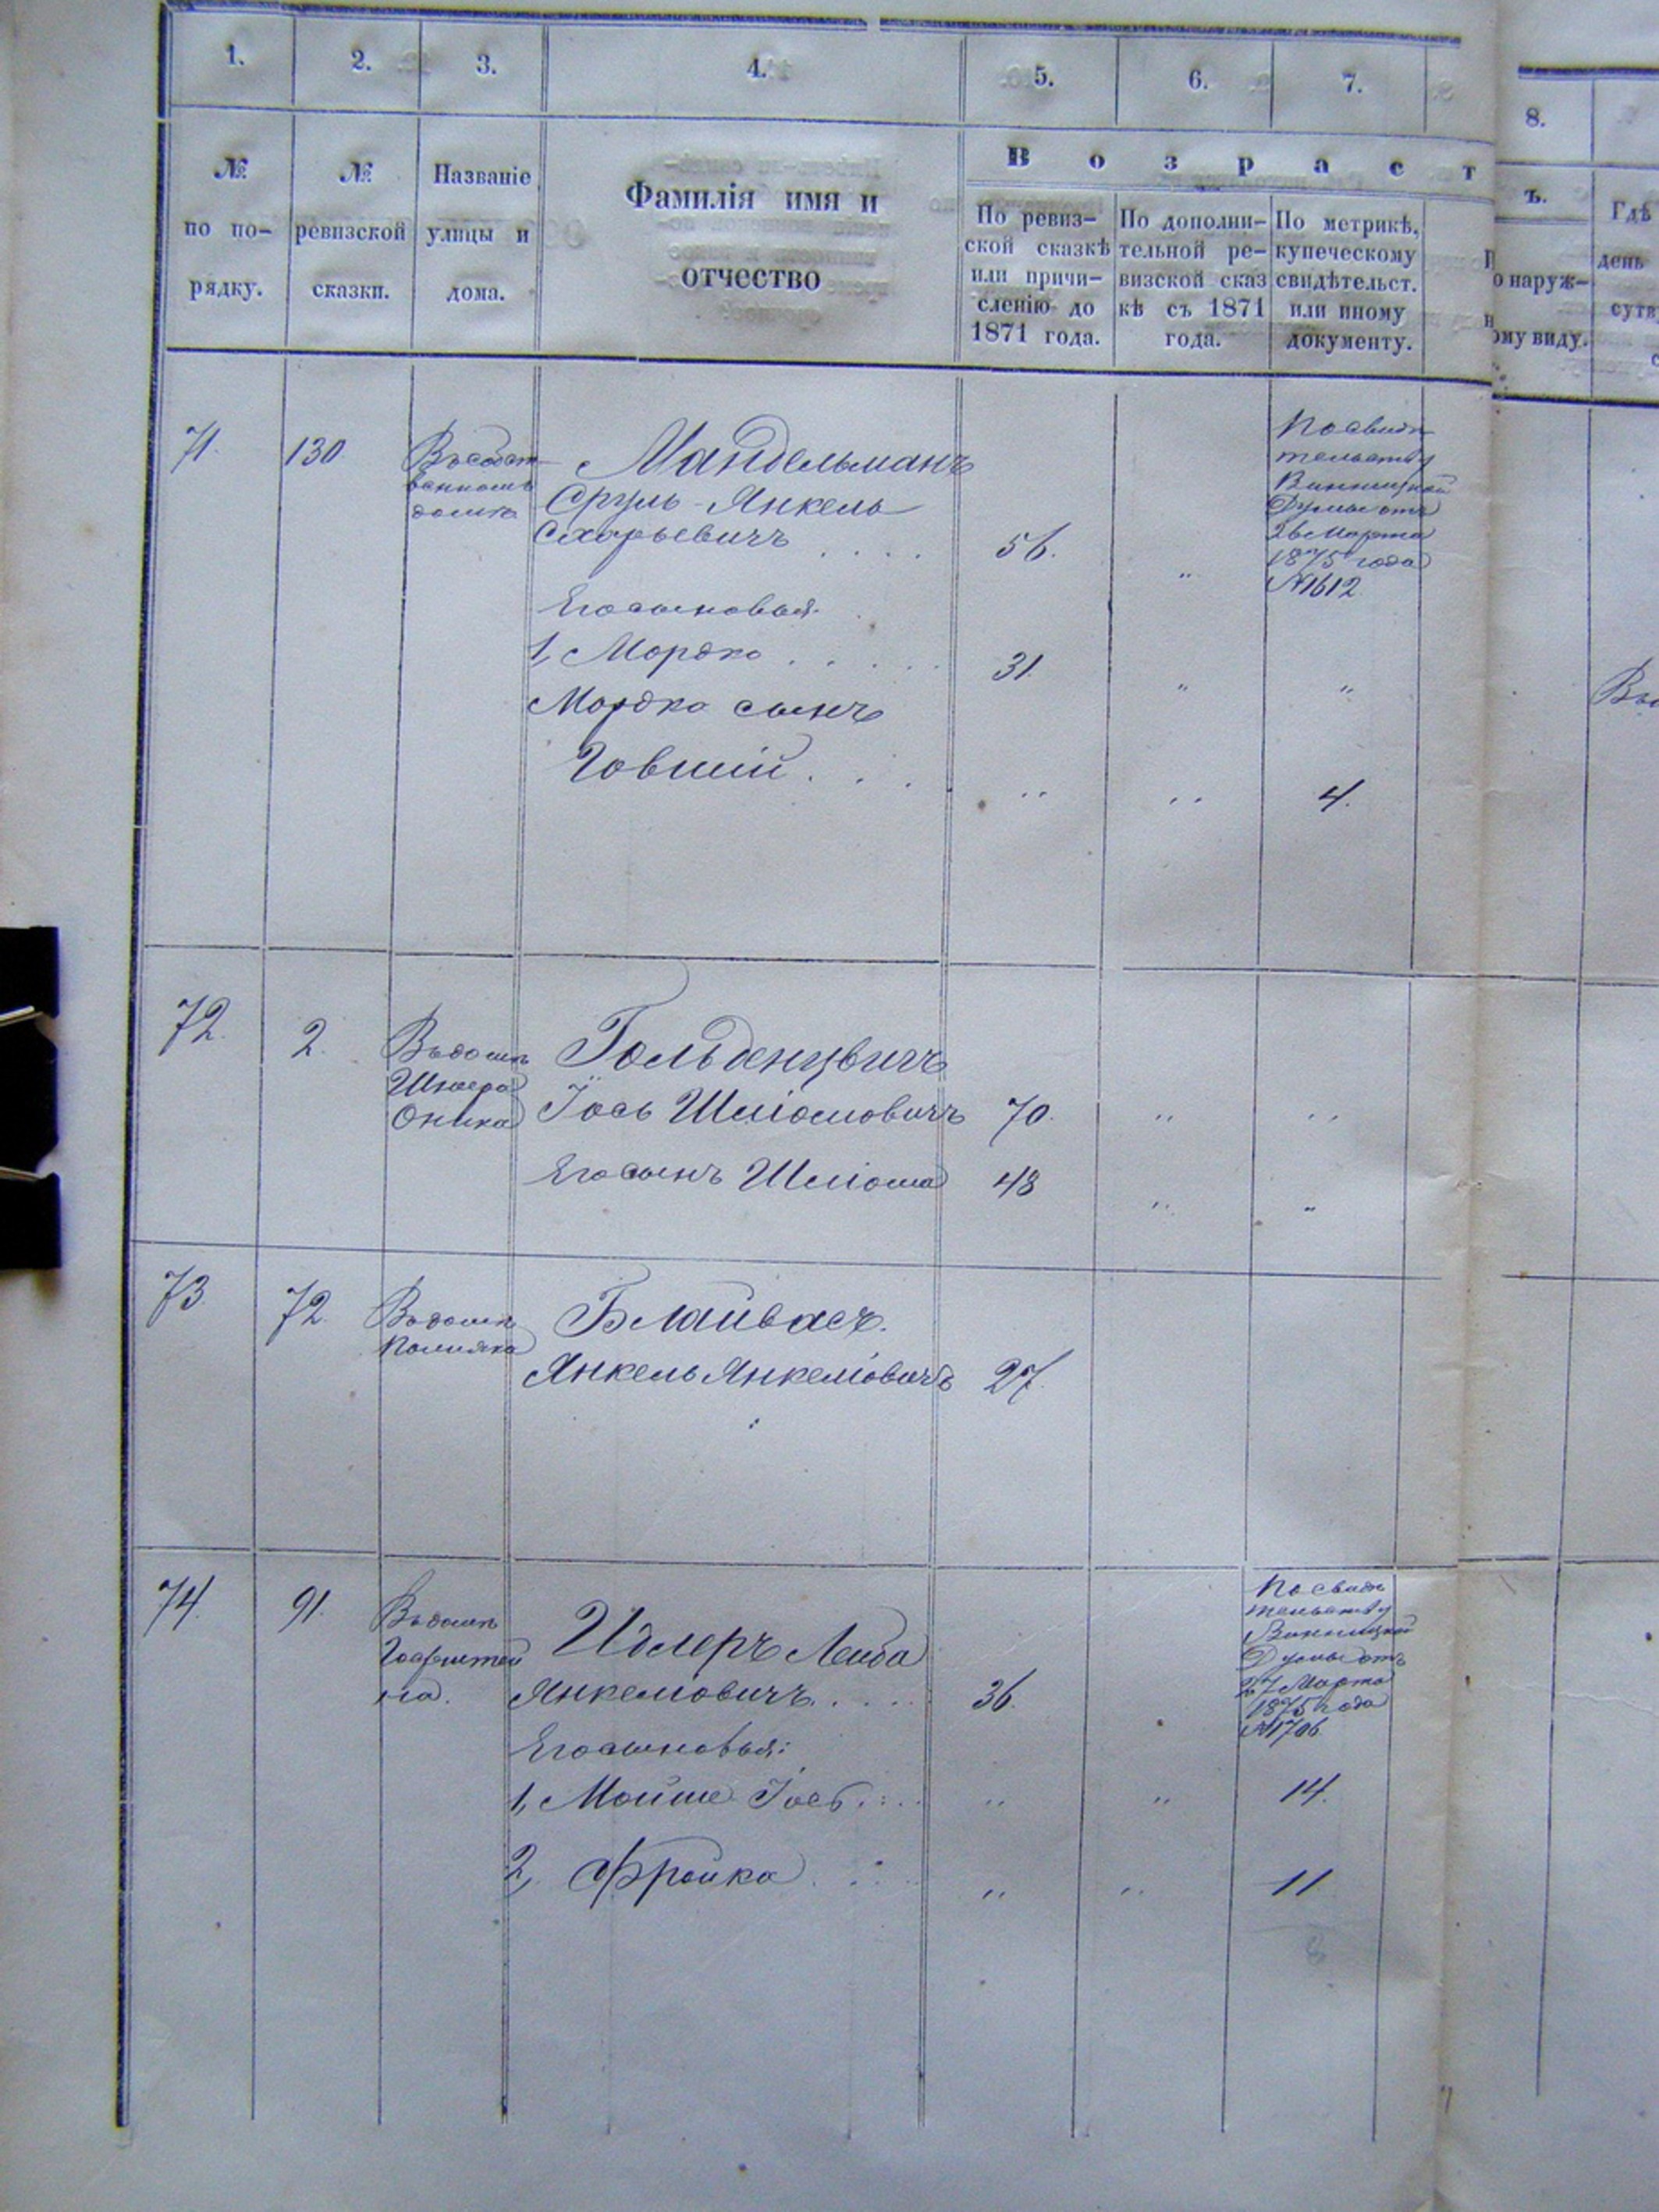 1.
2.
3.
4.
5.
6.
7.
8.
№
по по-
рядку.
№
ревизской
сказки.
Названіе
улицы и
дома.
Фамилія имя и
отчество
Возраст
ъ.
По ревиз-
ской сказкѣ
или причи-
сленію до
1871 года.
По дополни-
тельной ре-
визской сказ
кѣ съ 1871
года.
По метрикѣ,
купеческому
свидѣтельст.
или иному
документу.
о наруж-
ому виду.
Гдѣ
день
71.
130
Въ собст
венномъ
домѣ
Мандельманъ
Сруль-Янкель
Сахарьевичъ . . . .
56.
"
По свидѣ
тельству
Винницкой
Думы отъ
26 Марта
1875 года
№1612.
Его сыновья.
1, Мордко . . . . .
31.
"
"
Мордко сынъ
Говшій . . .
"
"
4.
72.
2.
Въ домѣ
Шнеера
Оника
Гольденцвичъ
Іось Шліомовичъ
70.
"
"
Его сынъ Шліома
48
"
"
73.
72.
Въ домѣ
Поляка
Блайвасъ.
Янкель Янкеліовичъ
27.
74.
91.
Въ домѣ
Гофштей
на.
Идлеръ Лейба
Янкеліовичъ . . . .
36.
По свидѣ
тельству
Винницкой
Думы отъ
27 Марта
1875 года
№1706.
Его сыновья:
1, Мойше Іось . . .
"
"
14.
2, Фройка . . .
"
"
11